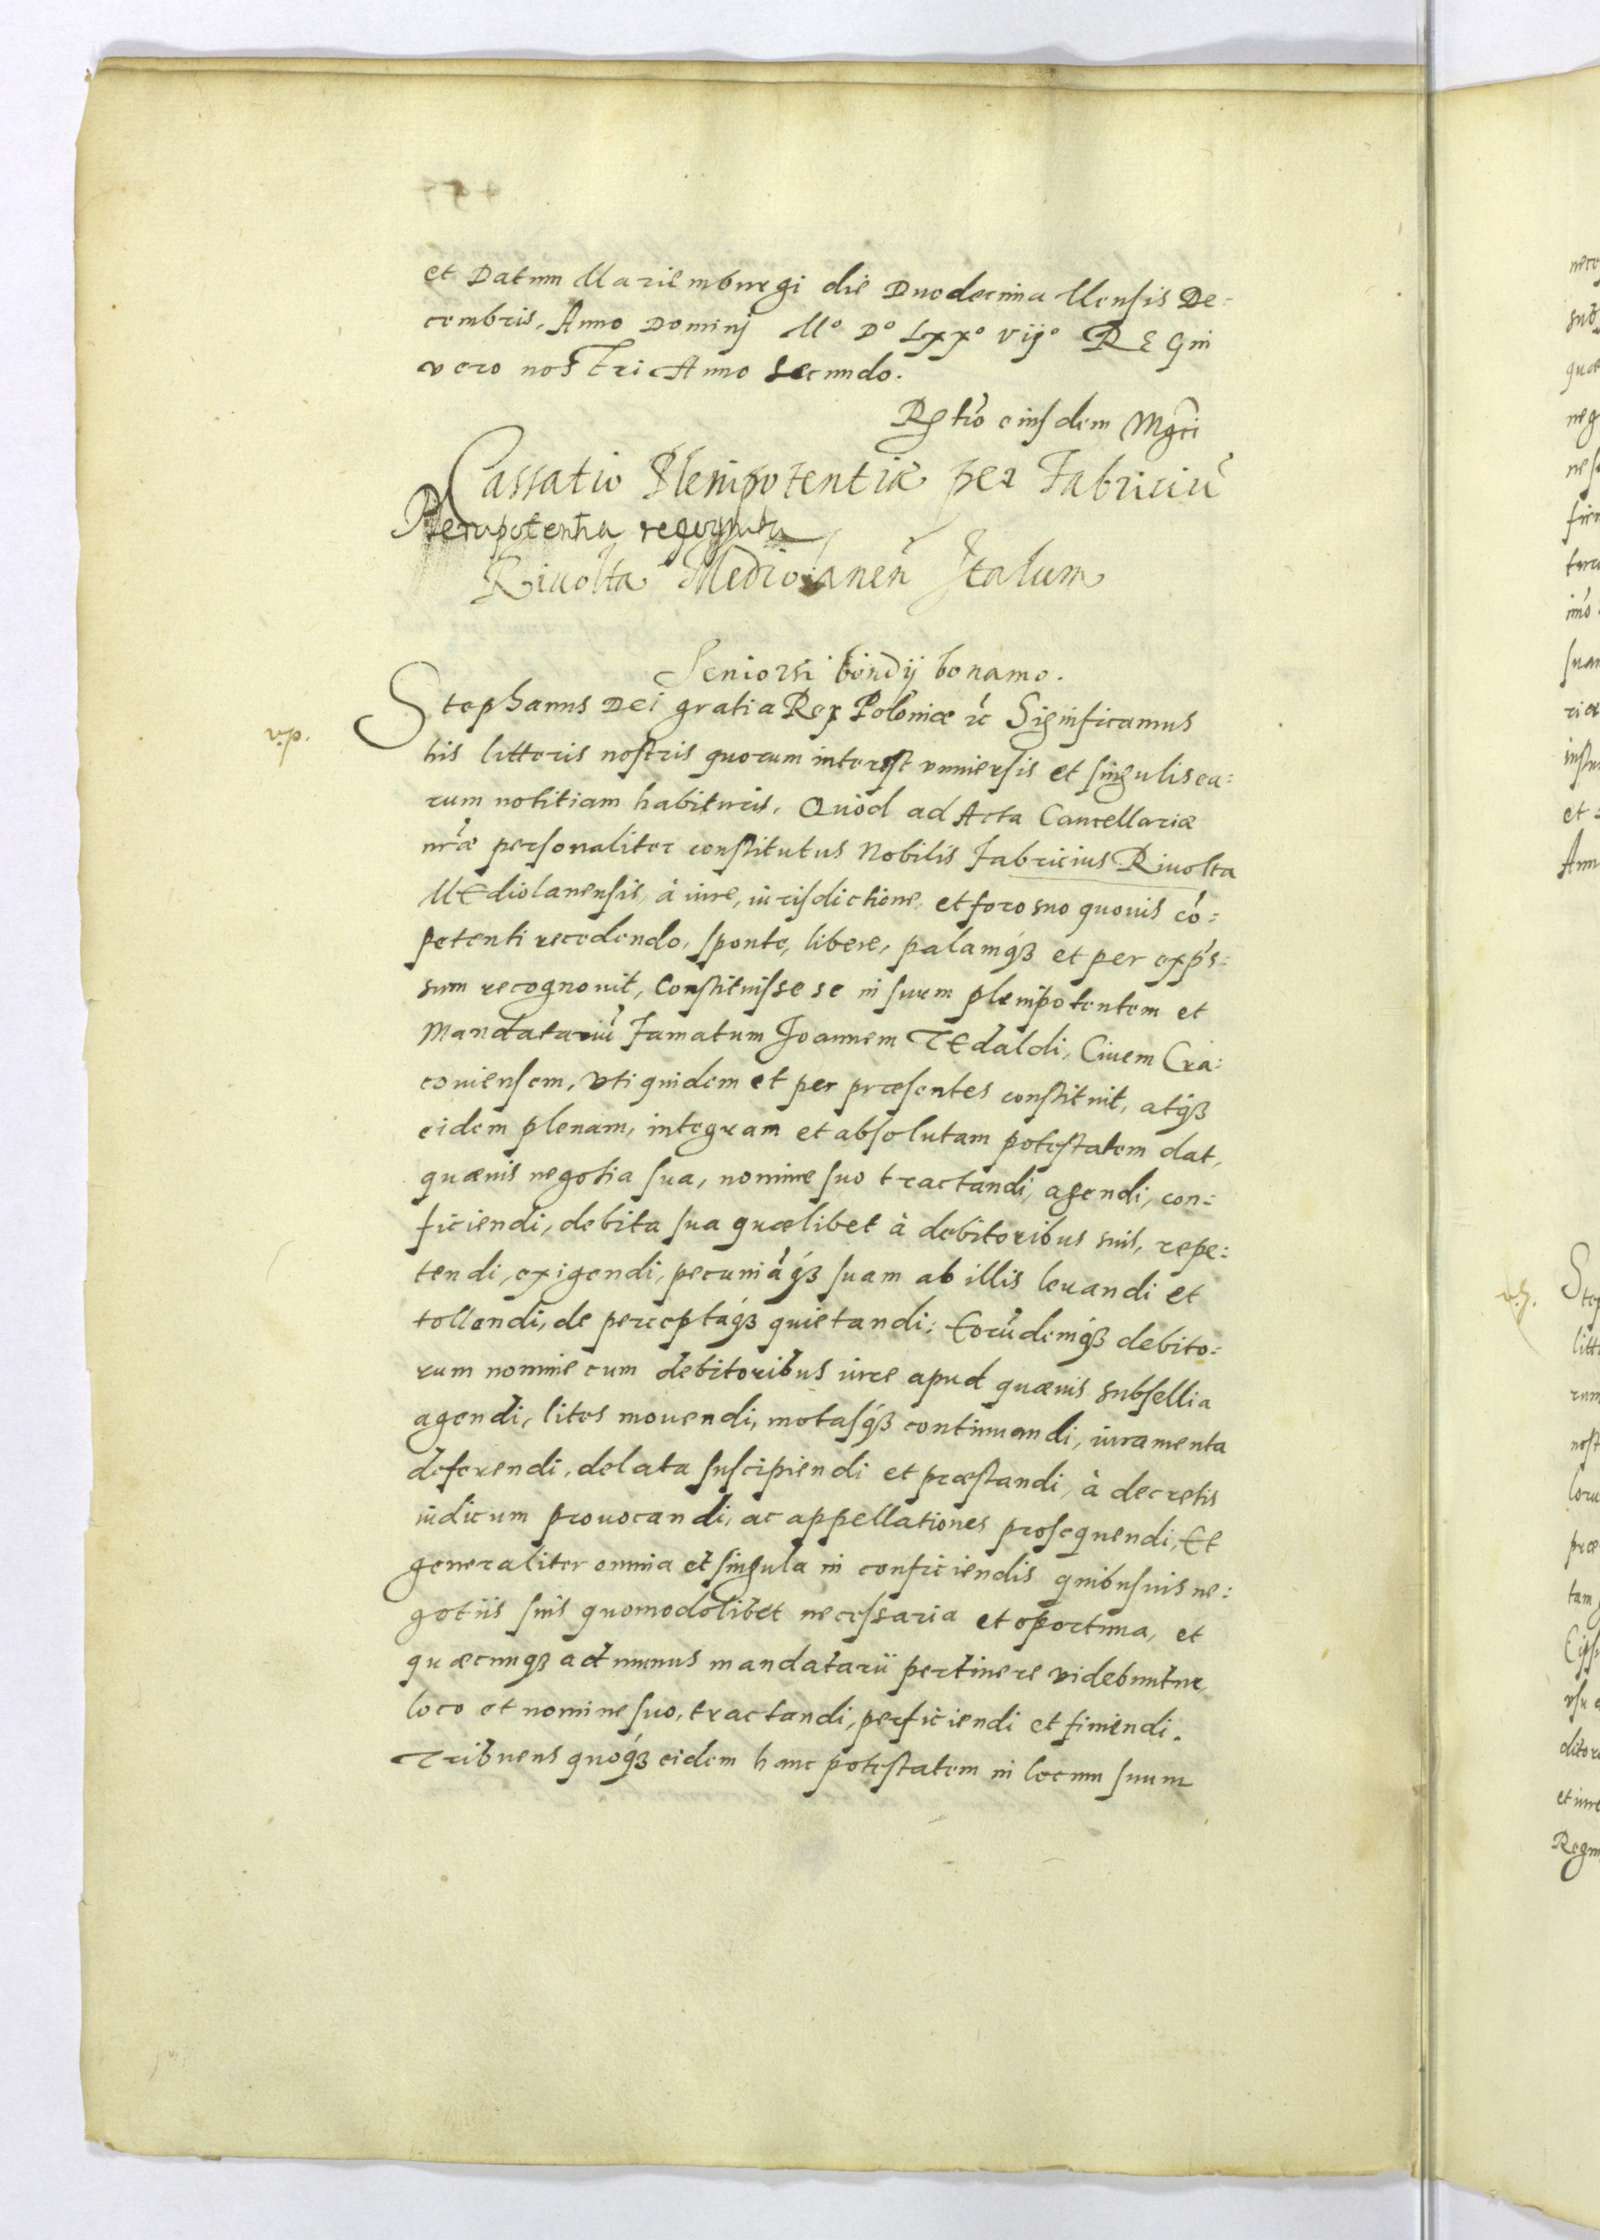 et Datum Mariemburgi die Duodecima Mensis De=
cembris, Anno Dominj Mº Dº Lxxº vijº REgni
vero nostri Anno Secundo.
Rᶜtio eiusdem Mgci
Cassatio Plenipotentiæ per Fabriciū
Plenipotentia recognita
Riuolta Mediolanen̄ Italum
Seniorsi bindij bonamo.
v.p.
Stephanus DEi gratia Rex Poloniæ rc Significamus
his litteris nostris quorum interest vniuersis et singulis ea=
rum notitiam habituris. Quòd ad Acta Cancellariæ
nrǣ personaliter constitutus Nobilis Fabricius Riuolta
MEdiolanensis, à iure, iurisdictione, et foro suo quouis cō=
petenti recedendo, sponte, libere, palamqȝ et per expr̄s=
sum recognouit, Constituisse se in suum plenipotentem et
Mandatariū Famatum Joannem TEdaldi, Ciuem Cra=
couiensem, vti quidem et per præsentes constituit, atqȝ
eidem plenam, integram et absolutam potestatem dat,
quæuis negotia sua, nomine suo tractandi, agendi, con=
ficiendi, debita sua quælibet à debitoribus suis, repe=
tendi, exigendi, pecuniāqȝ suam ab illis leuandi et
tollendi, de perceptaqȝ quietandi: Eorūdemqȝ debito=
rum nomine cum debitoribus iure apud quæuis subsellia
agendi, lites mouendi, motasqȝ continuandi, iuramenta
deferendi, delata suscipiendi et præstandi, à decretis
iudicum prouocandi, ac appellationes prosequendi, Et
generaliter omnia et singula in conficiendis quibusuis ne=
gotiis suis quomodolibet necessaria et oportuna, et
quæcunqȝ ad munus mandatarii pertinere videbuntur
loco et nomine suo, tractandi, perficiendi et finiendi.
Tribuens quoqȝ eidem hanc potestatem in locum suum